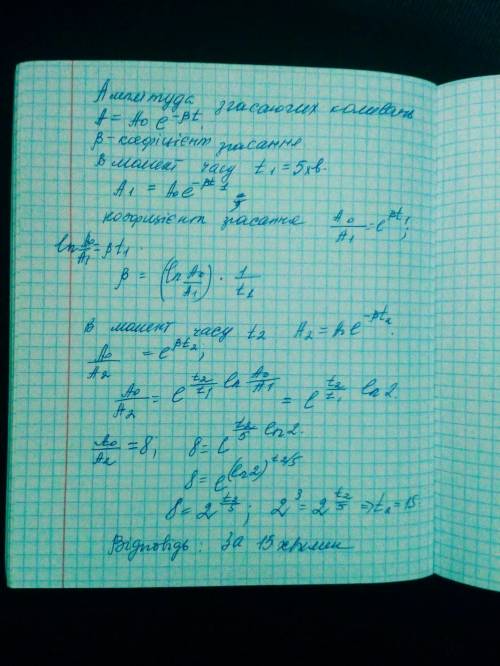 Амплітуда згасаючих коливань
A = A₀ e^(-βt)
β - коефіцієнт згасання
В момент часу t₁ = 5 хв.
A₁ = A₀e^(-βt₁)
коефіцієнт згасання A₀/A₁ = e^(βt₁);
ln A₀/A₁ = βt₁.
β = (ln A₀/A₁) · 1/t₁
В момент часу t₂ A₂ = A₀e^(-βt₂).
A₀/A₂ = e^(βt₂);
A₀/A₂ = e^(t₂/t₁ ln A₀/A₁) = e^(t₂/t₁ ln 2.)
A₀/A₂ = 8; 8 = e^(t₂/5 ln 2.)
8 = e^((ln 2)^(t₂/5))
8 = 2^(t₂/5); 2³ = 2^(t₂/5) => t₂ = 15
Відповідь: За 15 хвилин